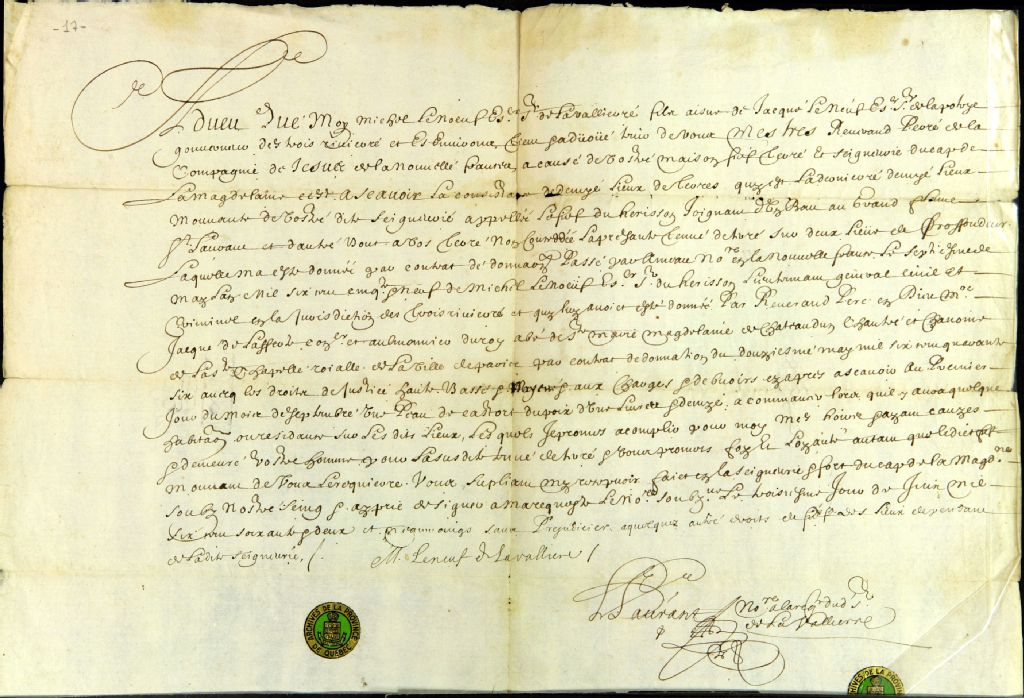 -17-
Adveu que Moy Michel LeNeuf Escr Sr de Lavallierre fils aisné de Jacque LeNeuf Escr Sr de lapoterye
gouverneur des trois Rivierre et Es Environs, tien tenir de vous Mes tres Reverand Peres de la
Compagnie de Jesus de la Nouvelle france, a cause de vostre maison fief terre Et seigneurie du cap de
La Magdelaine cest Ascavoir La consistance de demye Lieux de terres quy est Ladernierre demye Lieux
Mouvante de vostre dite seigneurie appellée Lefief du herisson Joignant d'un Bou au Grand fleuve
St Lauvans et dautre Bout a vos terre Non Conceddée Lapresante tenue detire sur deux Lieux de Proffondieur
Laquelle ma esté donnée par contrat de donnaon Passé par Ameau Nore en la Nouvelle france Le septiesme de
May Lan Mil six cens cinq. neuf de Michel LeNeuf Escr Sr du herisson Lieutenant general civil et
Criminel en la Jurisdiction des trois rivierre et quy luy avoit esté donné Par Reverand Pere en Dieu Mre
Jacque de Lafferté conser et aulmonnier du roy abé de Ste marie Magdelaine de Chateaudun Chantre et Chanoine
de La Ste Chapelle roialle de La ville de paris par contrat de donnation du douziesme may mil six cens quarante
six avecq les droits de Justice haute Basse & Moyenne & aux Charges & debvoirs cy apres ascavoir Au Premier
Jour du Mois de septembre une Peau de castor du poix d'une Livre & demye, a commancer lors quil y aura quelque
habitans ou residants sur Les dits Lieux, Les quels Je promes acomplir pour moy Mes hoirs ayans causes
& demeuré vostre homme pour La susdite terre & vous promes foy Et Loyauté autant que ledict fief
Mouvant de vous Le requiere. Vous supliant my recepvoir faict en la seigneurie & fort du cap de la Magdne
soubz Nostre seing & apprie de signer a marequeste Le Nore soubzné Le troisiesme Jour de Juin mil
six cens soixante & deux et Neanmoings sans Prejudicier a quelques autre droits de fief des Lieux dependant
de Ladite seigneurie, /. M. Leneuf de Lavallierre /
Laurant
Nore a la reqte dudt Sr
de La Vallierre
ARCHIVES DE LA PROVINCE DE QUÉBEC
ARCHIVES DE LA PROVINCE